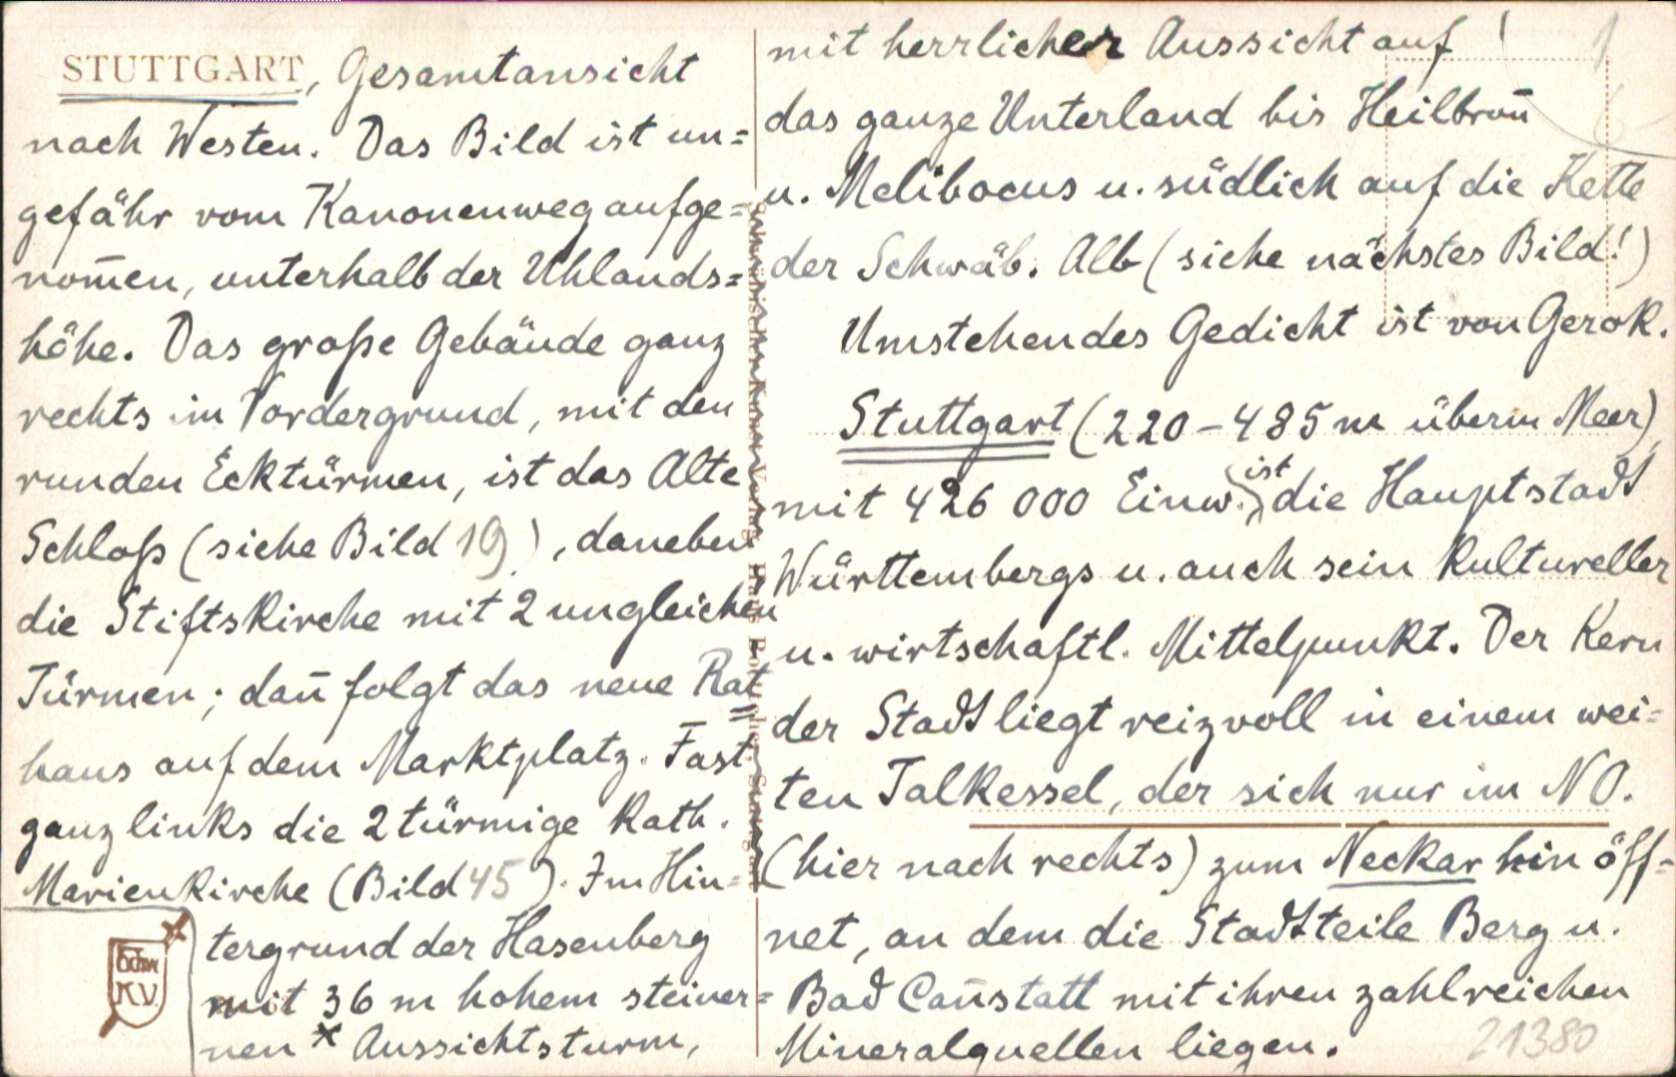 STUTTGART, Gesamtansicht
nach Westen. Das Bild ist un=
gefähr vom Kanonenweg aufge=
nom̅en, unterhalb der Uhlands=
höhe. Das große Gebäude ganz
rechts im Vordergrund, mit den
runden Ecktürmen, ist das Alte
Schloß (siehe Bild 19), daneben
die Stiftskirche mit 2 ungleichen
Türmen; dan̅ folgt das neue Rat=
haus auf dem Marktplatz. Fast
ganz links die 2türmige Kath.
Marienkirche (Bild 45). Im Hin=
tergrund der Hasenberg
mit 36 m hohem steiner=
nen * Aussichtsturm,
Schw
K.V.
mit herrlicher Aussicht auf
das ganze Unterland bis Heilbron̅
u. Melibocus u. südlich auf die Kette
der Schwäb. Alb (siehe nächstes Bild!)
Umstehendes Gedicht ist von Gerok.
Stuttgart (220–485 m überm Meer)
mit 426 000 Einw. ist die Hauptstadt
Württembergs u. auch sein kultureller
u. wirtschaftl. Mittelpunkt. Der Kern
der Stadt liegt reizvoll in einem wei=
ten Talkessel, der sich nur im NO.
(hier nach rechts) zum Neckar hin öff=
net, an dem die Stadtteile Berg u.
Bad Can̅statt mit ihren zahlreichen
Mineralquellen liegen.
21380